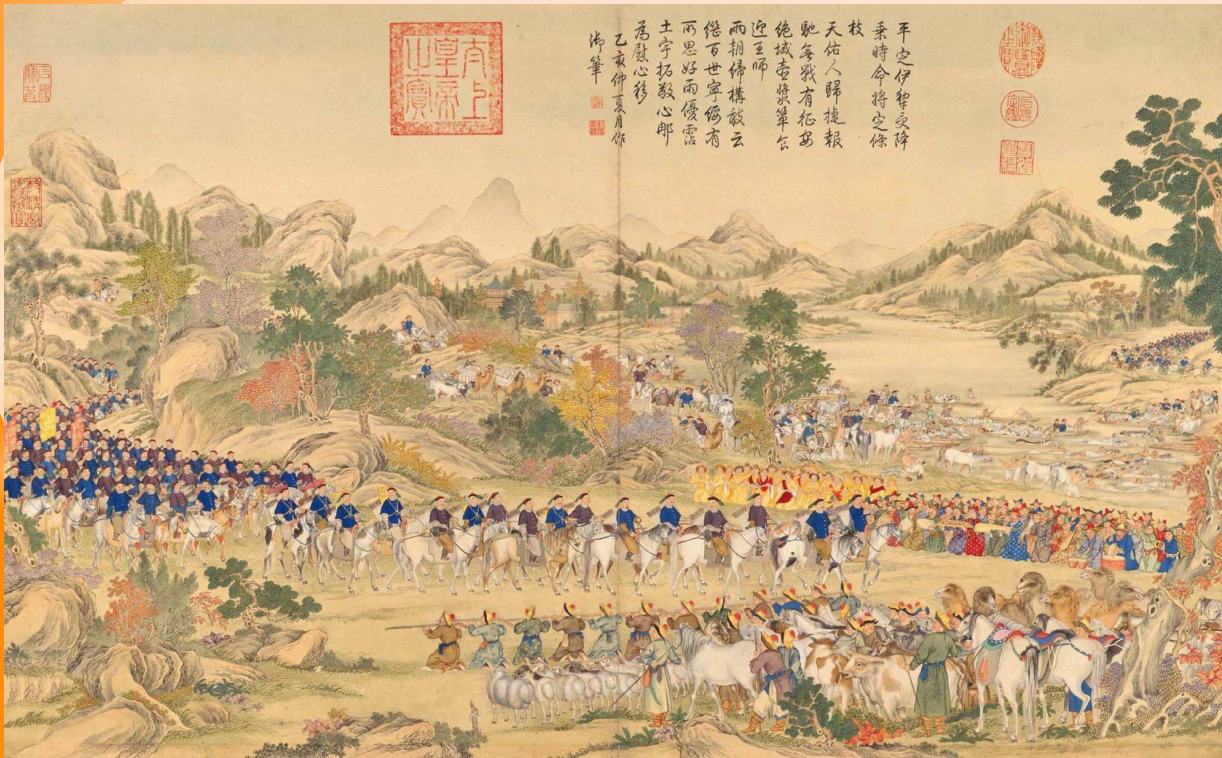 平定伊犂受降
乗時命將定條
枝
天佑人歸捷報
馳無戰有征安
絶域壺漿簞食
迎王師
兩朝締構敢云
繼百世寧綏有
所思好雨優霑
土宇拓敬心那
為慰心移
乙亥仲夏月作
御筆
太上皇帝之寶